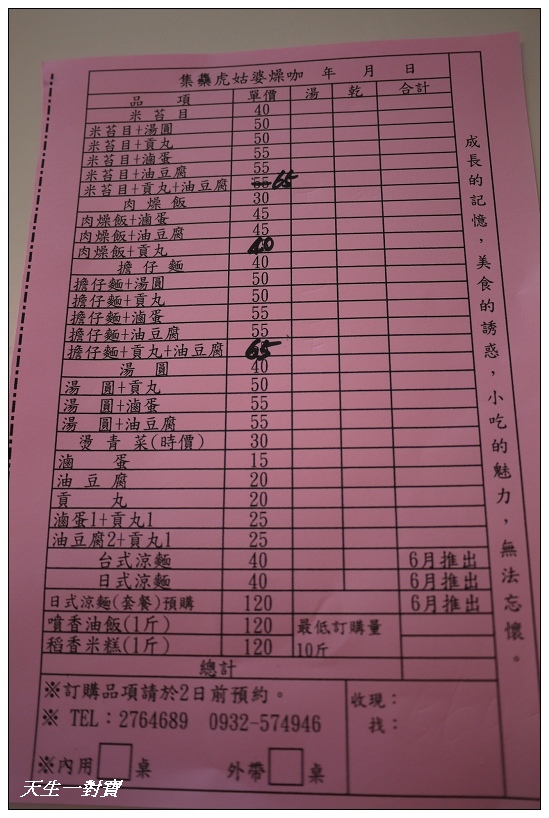 集鱻虎姑婆燥咖 年 月 日
品 項 單價 湯 乾 合計
米 苔 目 40
米苔目+湯圓 50
米苔目+貢丸 50
米苔目+滷蛋 55
米苔目+油豆腐 55
米苔目+貢丸+油豆腐 55 65
肉 燥 飯 30
肉燥飯+滷蛋 45
肉燥飯+油豆腐 45
肉燥飯+貢丸 40
擔 仔 麵 40
擔仔麵+湯圓 50
擔仔麵+貢丸 50
擔仔麵+滷蛋 55
擔仔麵+油豆腐 55
擔仔麵+貢丸+油豆腐 65
湯 圓 40
湯 圓+貢丸 50
湯 圓+滷蛋 55
湯 圓+油豆腐 55
燙 青 菜(時價) 30
滷 蛋 15
油 豆 腐 20
貢 丸 20
滷蛋1+貢丸1 25
油豆腐2+貢丸1 25
台式涼麵 40 6月推出
日式涼麵 40 6月推出
日式涼麵(套餐)預購 120 6月推出
噴香油飯(1斤) 120 最低訂購量
稻香米糕(1斤) 120 10斤
總計
※訂購品項請於2日前預約。 收現：
※ TEL：2764689 0932-574946 找：
※內用 桌 外帶 桌
成長的記憶，美食的誘惑，小吃的魅力，無法忘懷。
天生一對寶